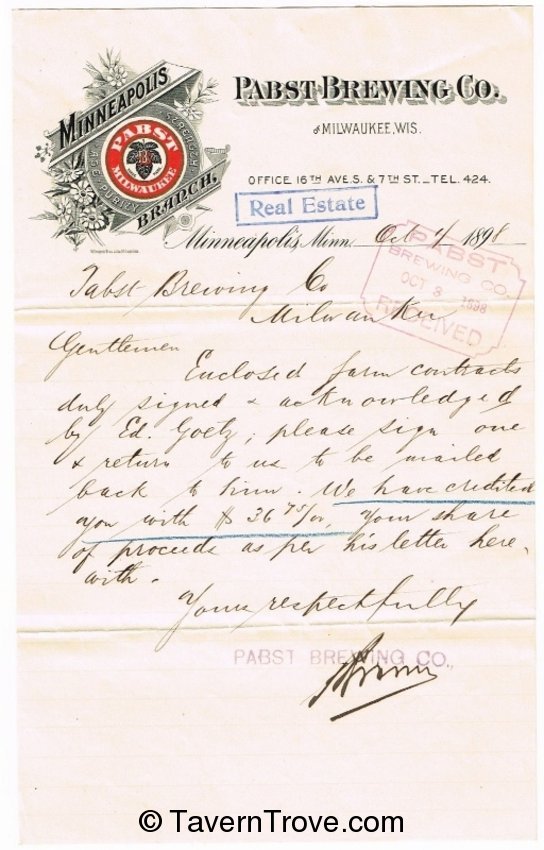 MINNEAPOLIS
PABST
MILWAUKEE
AGE PURITY STRENGTH
BRANCH.
PABST BREWING CO.
of MILWAUKEE, WIS.
OFFICE 16TH AVE S. & 7TH ST. _ TEL. 424.
Real Estate
Minneapolis, Minn. Oct 1898
PABST
BREWING CO.
OCT 3 1898
RECEIVED
Pabst Brewing Co
Milwaukee
Gentlemen
Enclosed farm contracts
duly signed & acknowledged
by Ed. Goetz; please sign one
& return to us to be mailed
back to him. We have credited
you with $ 36 75/00, your share
of proceeds as per his letter here
with.
Yours respectfully
PABST BREWING CO.,
© TavernTrove.com